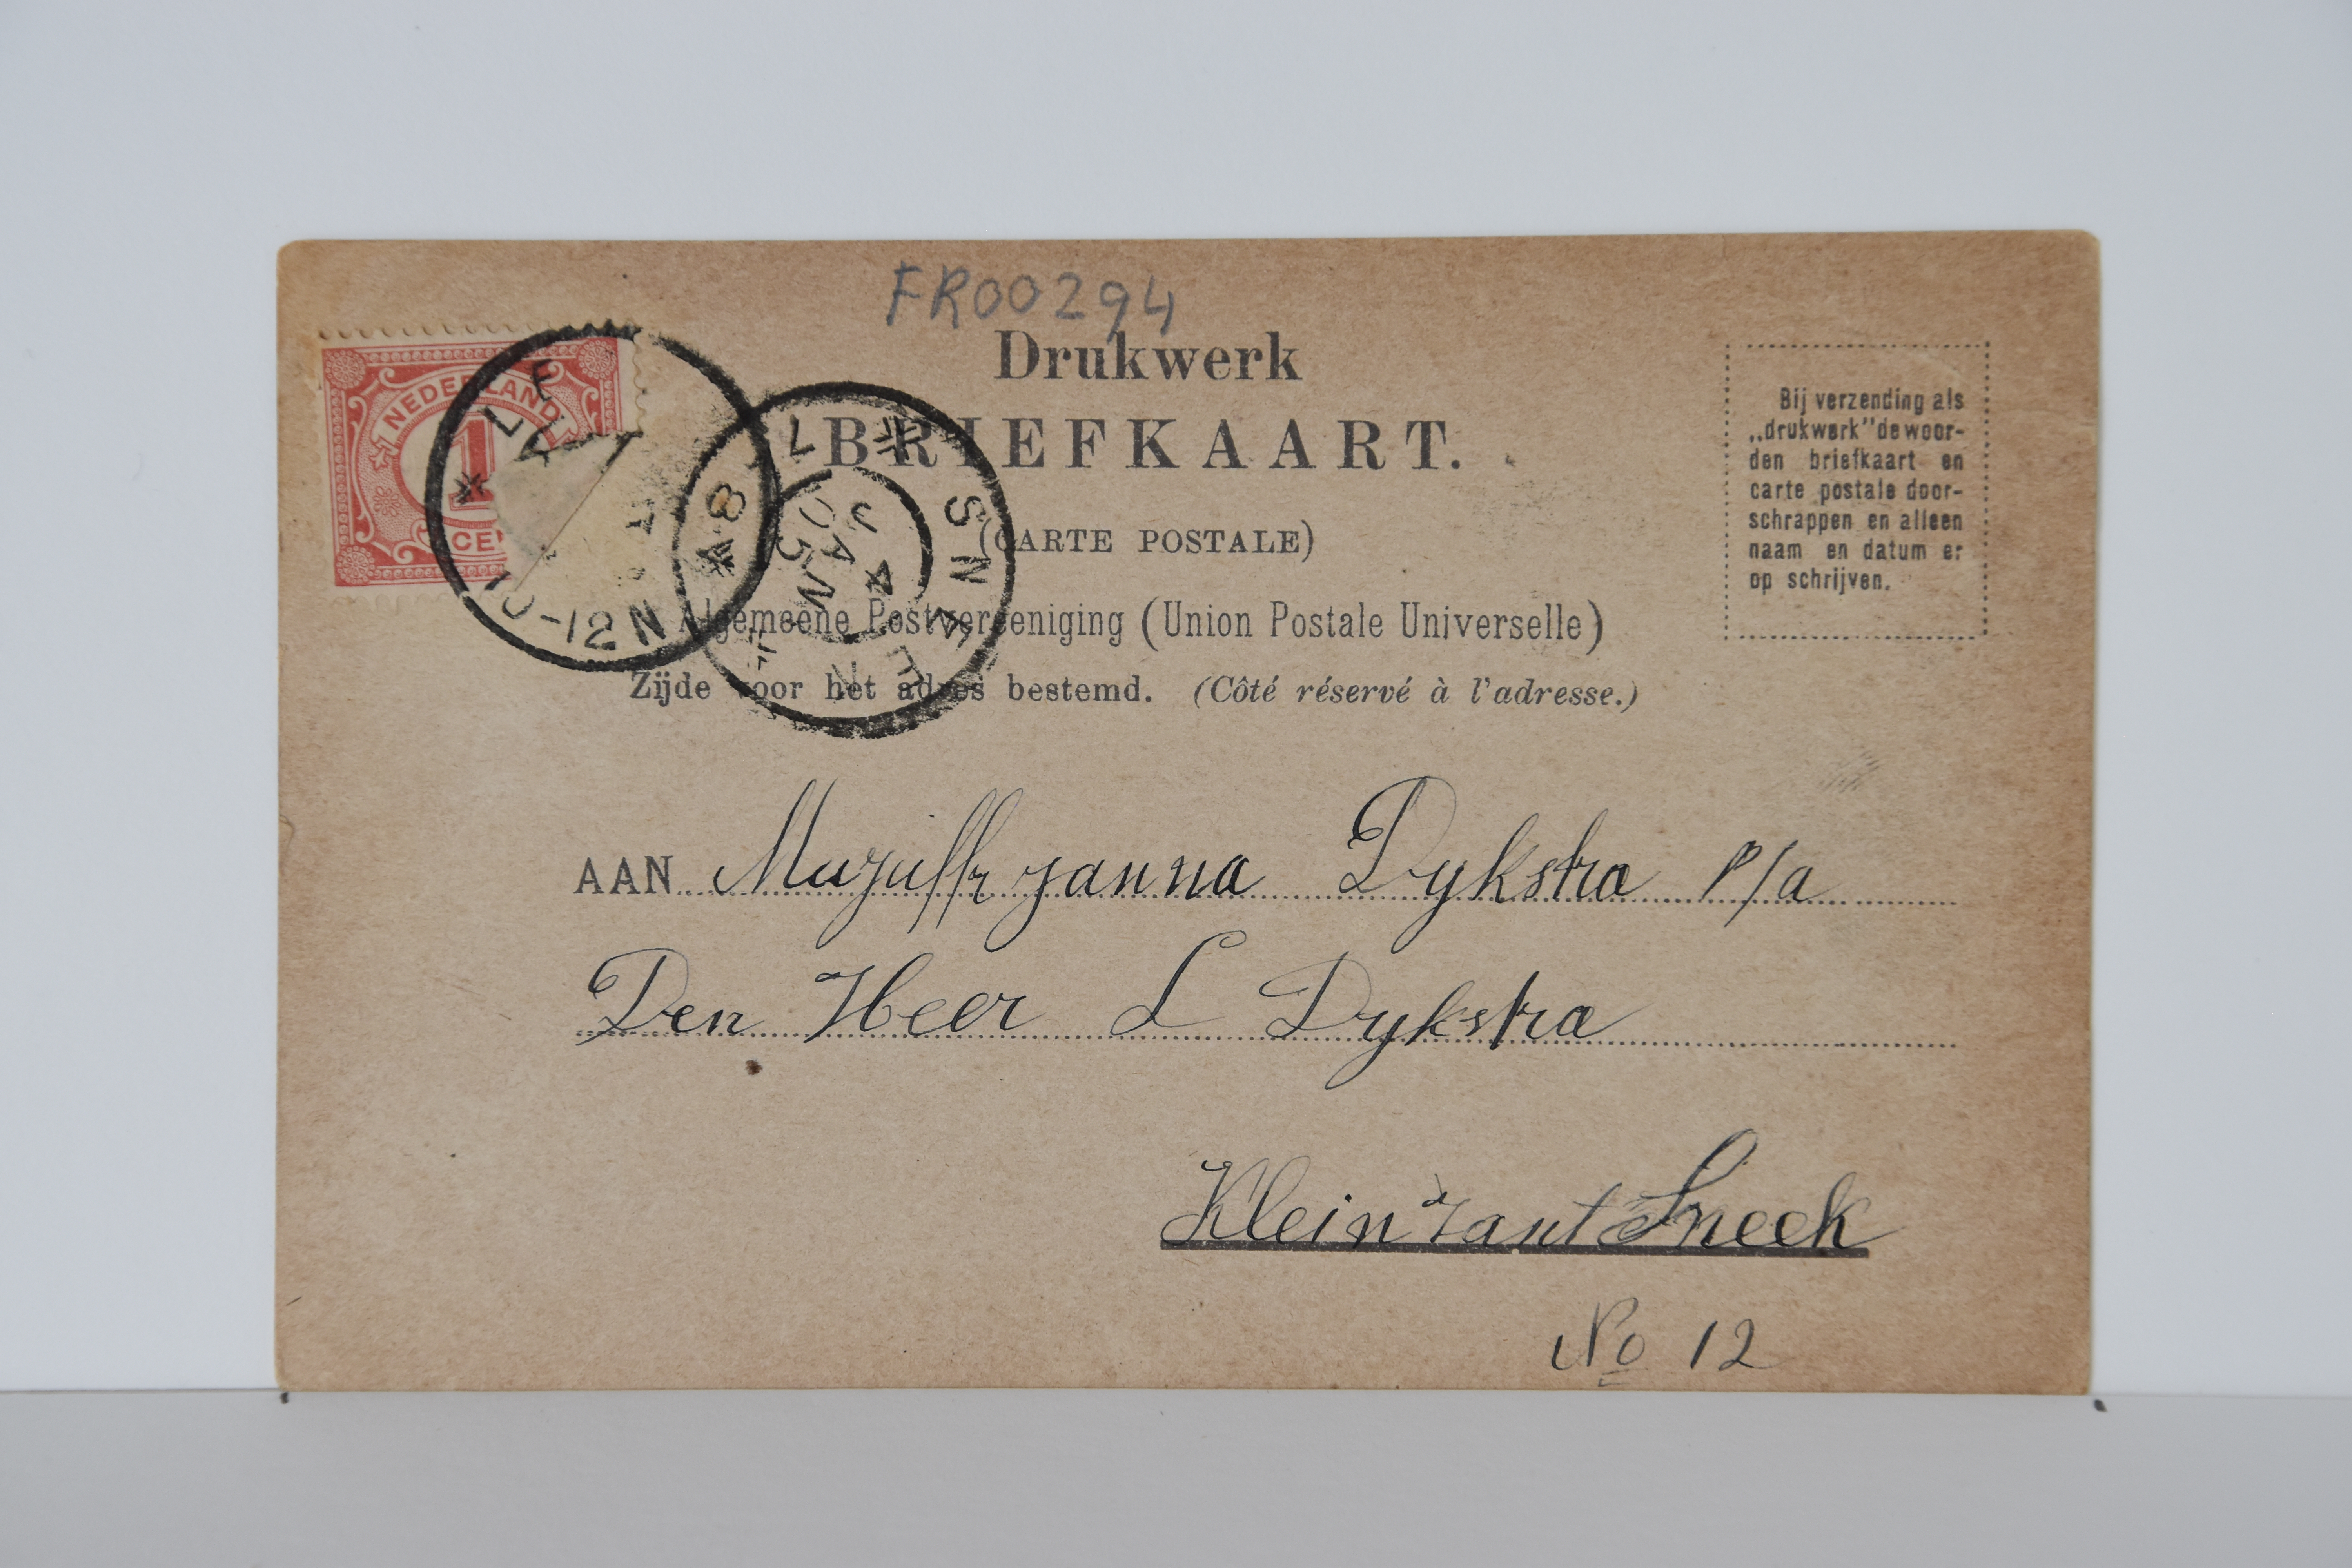 FR00294
Drukwerk
BRIEFKAART.
(CARTE POSTALE)
Algemeene Postvereeniging (Union Postale Universelle)
Zijde voor het adres bestemd. (Côté réservé à l'adresse.)
Bij verzending als
„drukwerk" de woor-
den briefkaart en
carte postale door-
schrappen en alleen
naam en datum er
op schrijven.
NEDERLAND
1
CEN
10-12 N
SNEEK
4 JAN
05
AAN Mejuffr Janna Dykstra P/a
Den Heer L Dykstra
Klein Zant Sneek
No 12